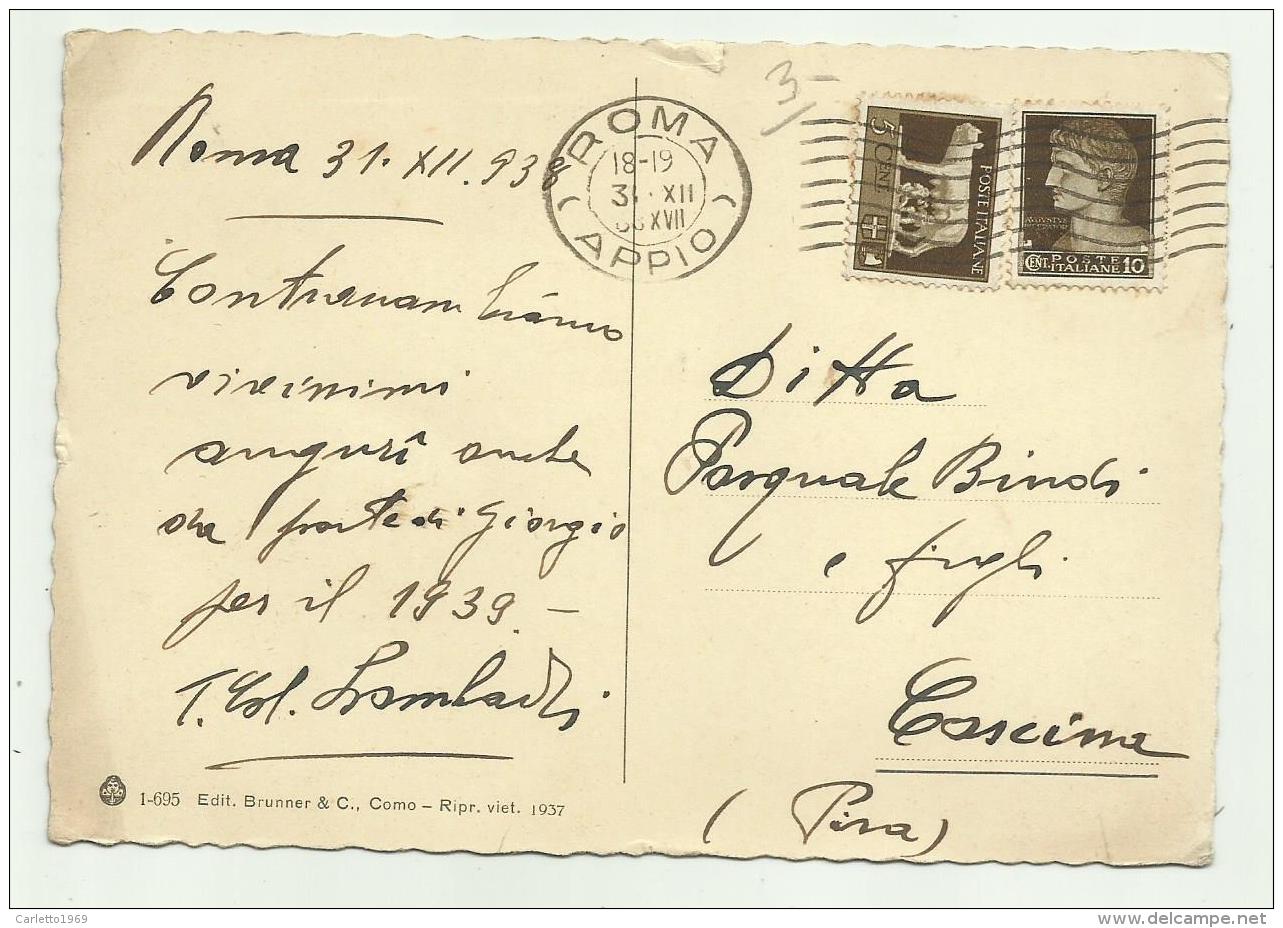 Roma 31. XII. 938
Contraccambiamo
vivissimi
auguri anche
da parte di Giorgio
per il 1939 –
T. Col. Lombardi
1-695 Edit. Brunner & C., Como – Ripr. viet. 1937
ROMA
18-19
31 · XII
XVII
APPIO
3/–
5 CENT.
POSTE ITALIANE
AVGVSTVS
CENT. POSTE ITALIANE 10
Ditta
Pasquale Bindi
e figli
Cascina
(Pisa)
Carletto1969
www.delcampe.net